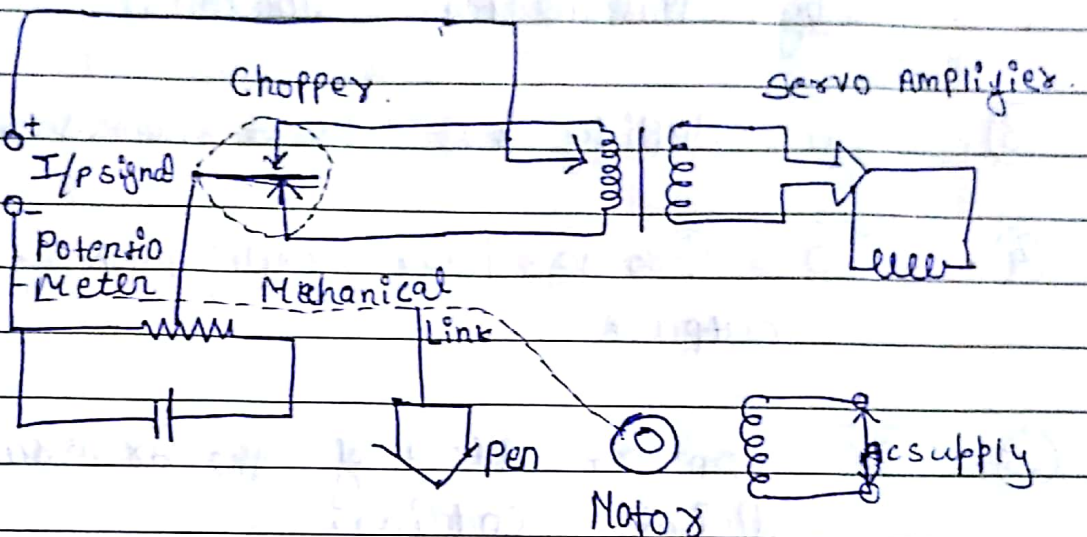 Chopper.
Servo Amplifier.
+
I/p signal
-
Potentio
Meter
Mechanical
Link
Pen
Motor
Ac supply